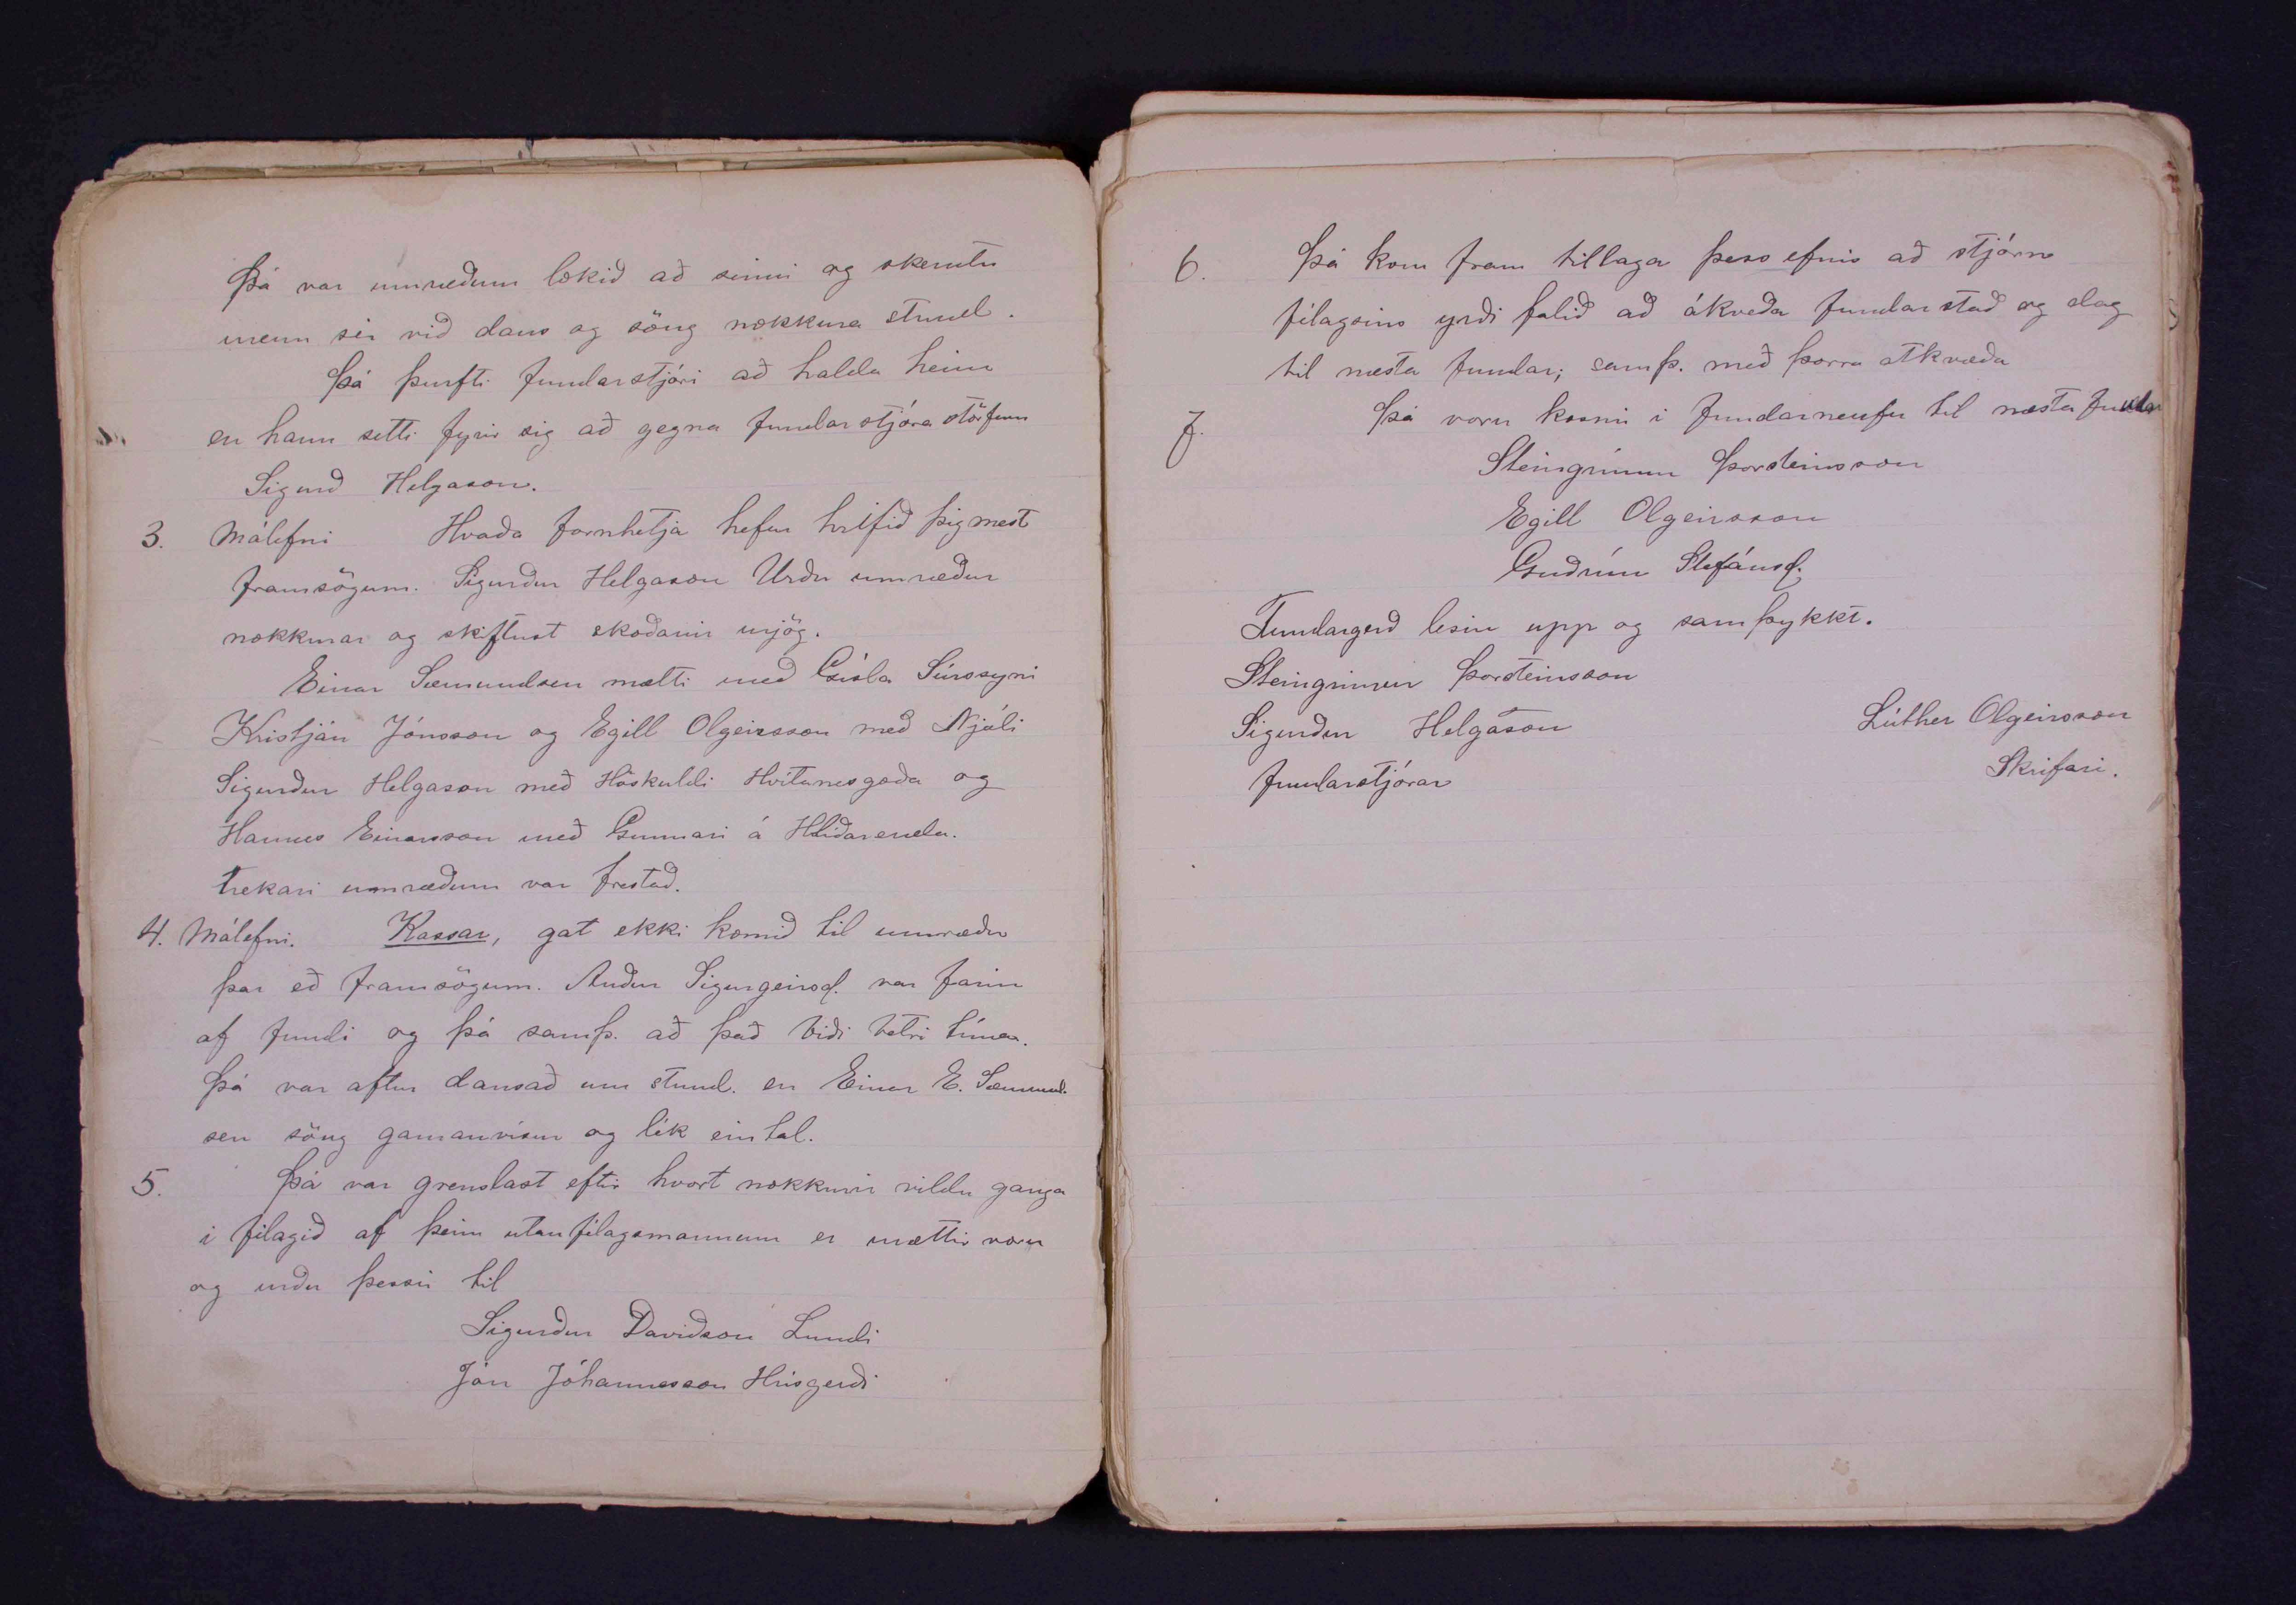 Þá var umræðum lokið að sinni og skemtu
menn sér við dans og söng nokkura stund.
Þá þurfti fundarstjóri að halda heim
en hann setti fyrir sig að gegna fundarstjóra störfum
Sigurð Helgason.
3. Málefni Hvaða fornhetja hefur hrifið þig mest
framsögum. Sigurður Helgason Urðu umræður
nokkurar og skiftust skoðanir mjög.
Einar Sæmundsen mælti með Gísla Súrssyni
Kristján Jónsson og Egill Olgeirsson með Njáli
Sigurður Helgason með Höskuldi Hvítanesgoða og
Hannes Einarsson með Gunnari á Hlíðarenda.
Frekari umræðum var frestað.
4. Málefni. Kassar, gat ekki komið til umræðu
þar eð framsögum. Auður Sigurgeirsd. var farin
af fundi og þá samþ. að það biði betri tíma.
Þá var aftur dansað um stund. en Einar E. Sæmund-
sen söng gamanvísur og lék eintal.
5. Þá var grenslast eftir hvort nokkurir vildu ganga
í félagið af þeim utanfélagsmönnum er mættir voru
og urðu þessir til
Sigurður Davíðson Lundi
Jón Jóhannesson Hrísgerði
6. Þá kom fram tillaga þess efnis að stjórn
félagsins yrði falið að ákveða fundarstað og dag
til næsta fundar; samþ. með þorra atkvæða
7. Þá voru kosnir í fundarnefnd til næsta fundar
Steingrímur Þorsteinsson
Egill Olgeirsson
Guðrún Stefánsd.
Fundargerð lesin upp og samþykkt.
Steingrímur Þorsteinsson
Sigurður Helgason Lúther Olgeirsson
fundarstjórar Skrifari.